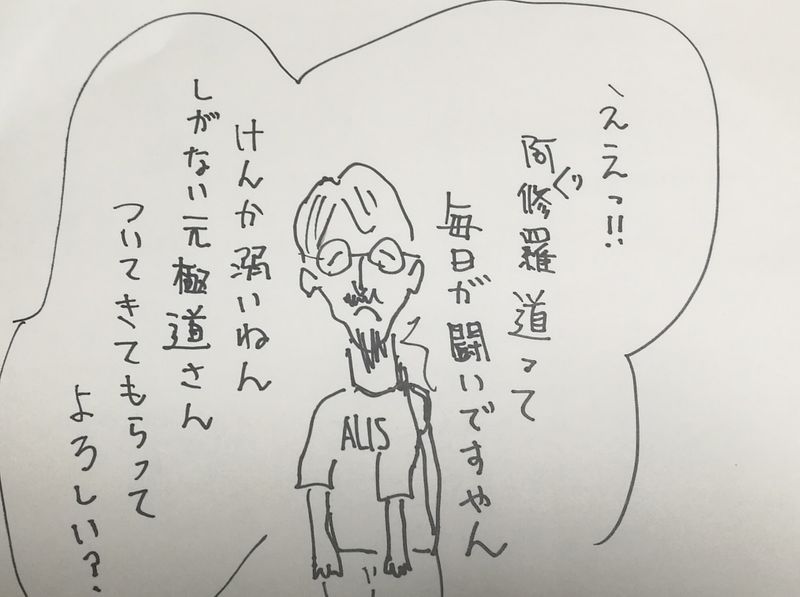 ええっ!!
阿修羅道って
毎日が闘いですやん
けんか溺いねん
しがない元極道さん
ついてきてもらって
よろしい?
ALIS